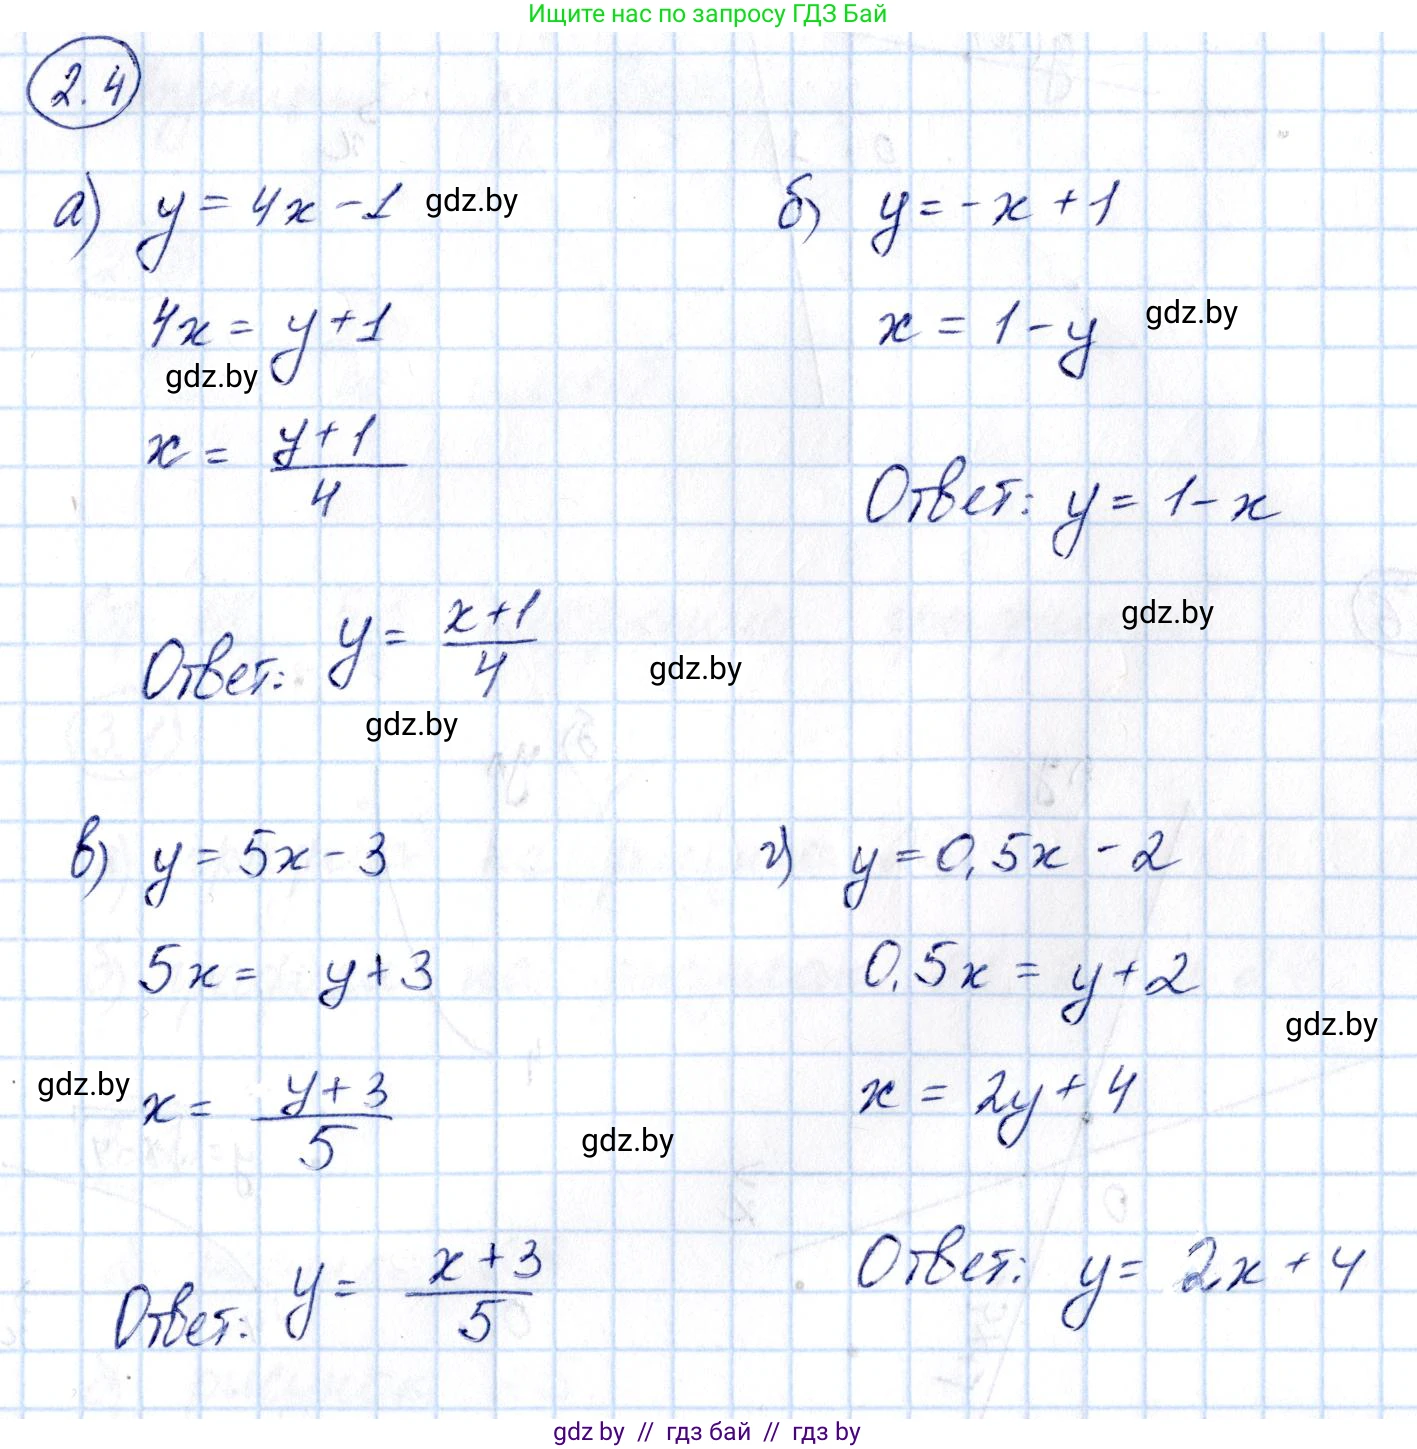 Ищите нас по запросу ГДЗ Бай
2.4
а) y = 4x - 1 gdz.by
4x = y + 1
gdz.by
x = (y + 1)/4
Ответ: y = (x + 1)/4 gdz.by
gdz.by
б) y = -x + 1
x = 1 - y gdz.by
Ответ: y = 1 - x
gdz.by
в) y = 5x - 3
5x = y + 3
gdz.by x = (y + 3)/5
gdz.by
Ответ: y = (x + 3)/5
г) y = 0,5x - 2
0,5x = y + 2
gdz.by
x = 2y + 4
Ответ: y = 2x + 4
gdz.by // гдз бай // гдз by